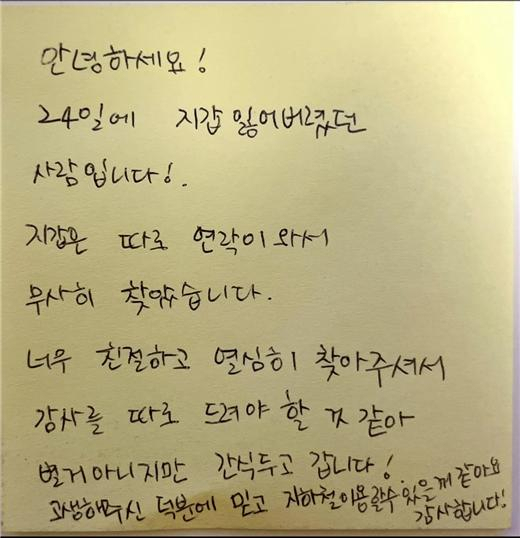 안녕하세요!
24일에 지갑 잃어버렸던
사람입니다!.
지갑은 따로 연락이 와서
무사히 찾았습니다.
너무 친절하고 열심히 찾아주셔서
감사를 따로 드려야 할 것 같아
별거아니지만 간식두고 갑니다!
고생해주신 덕분에 믿고 지하철이용할수있을께 같아요
감사합니다!